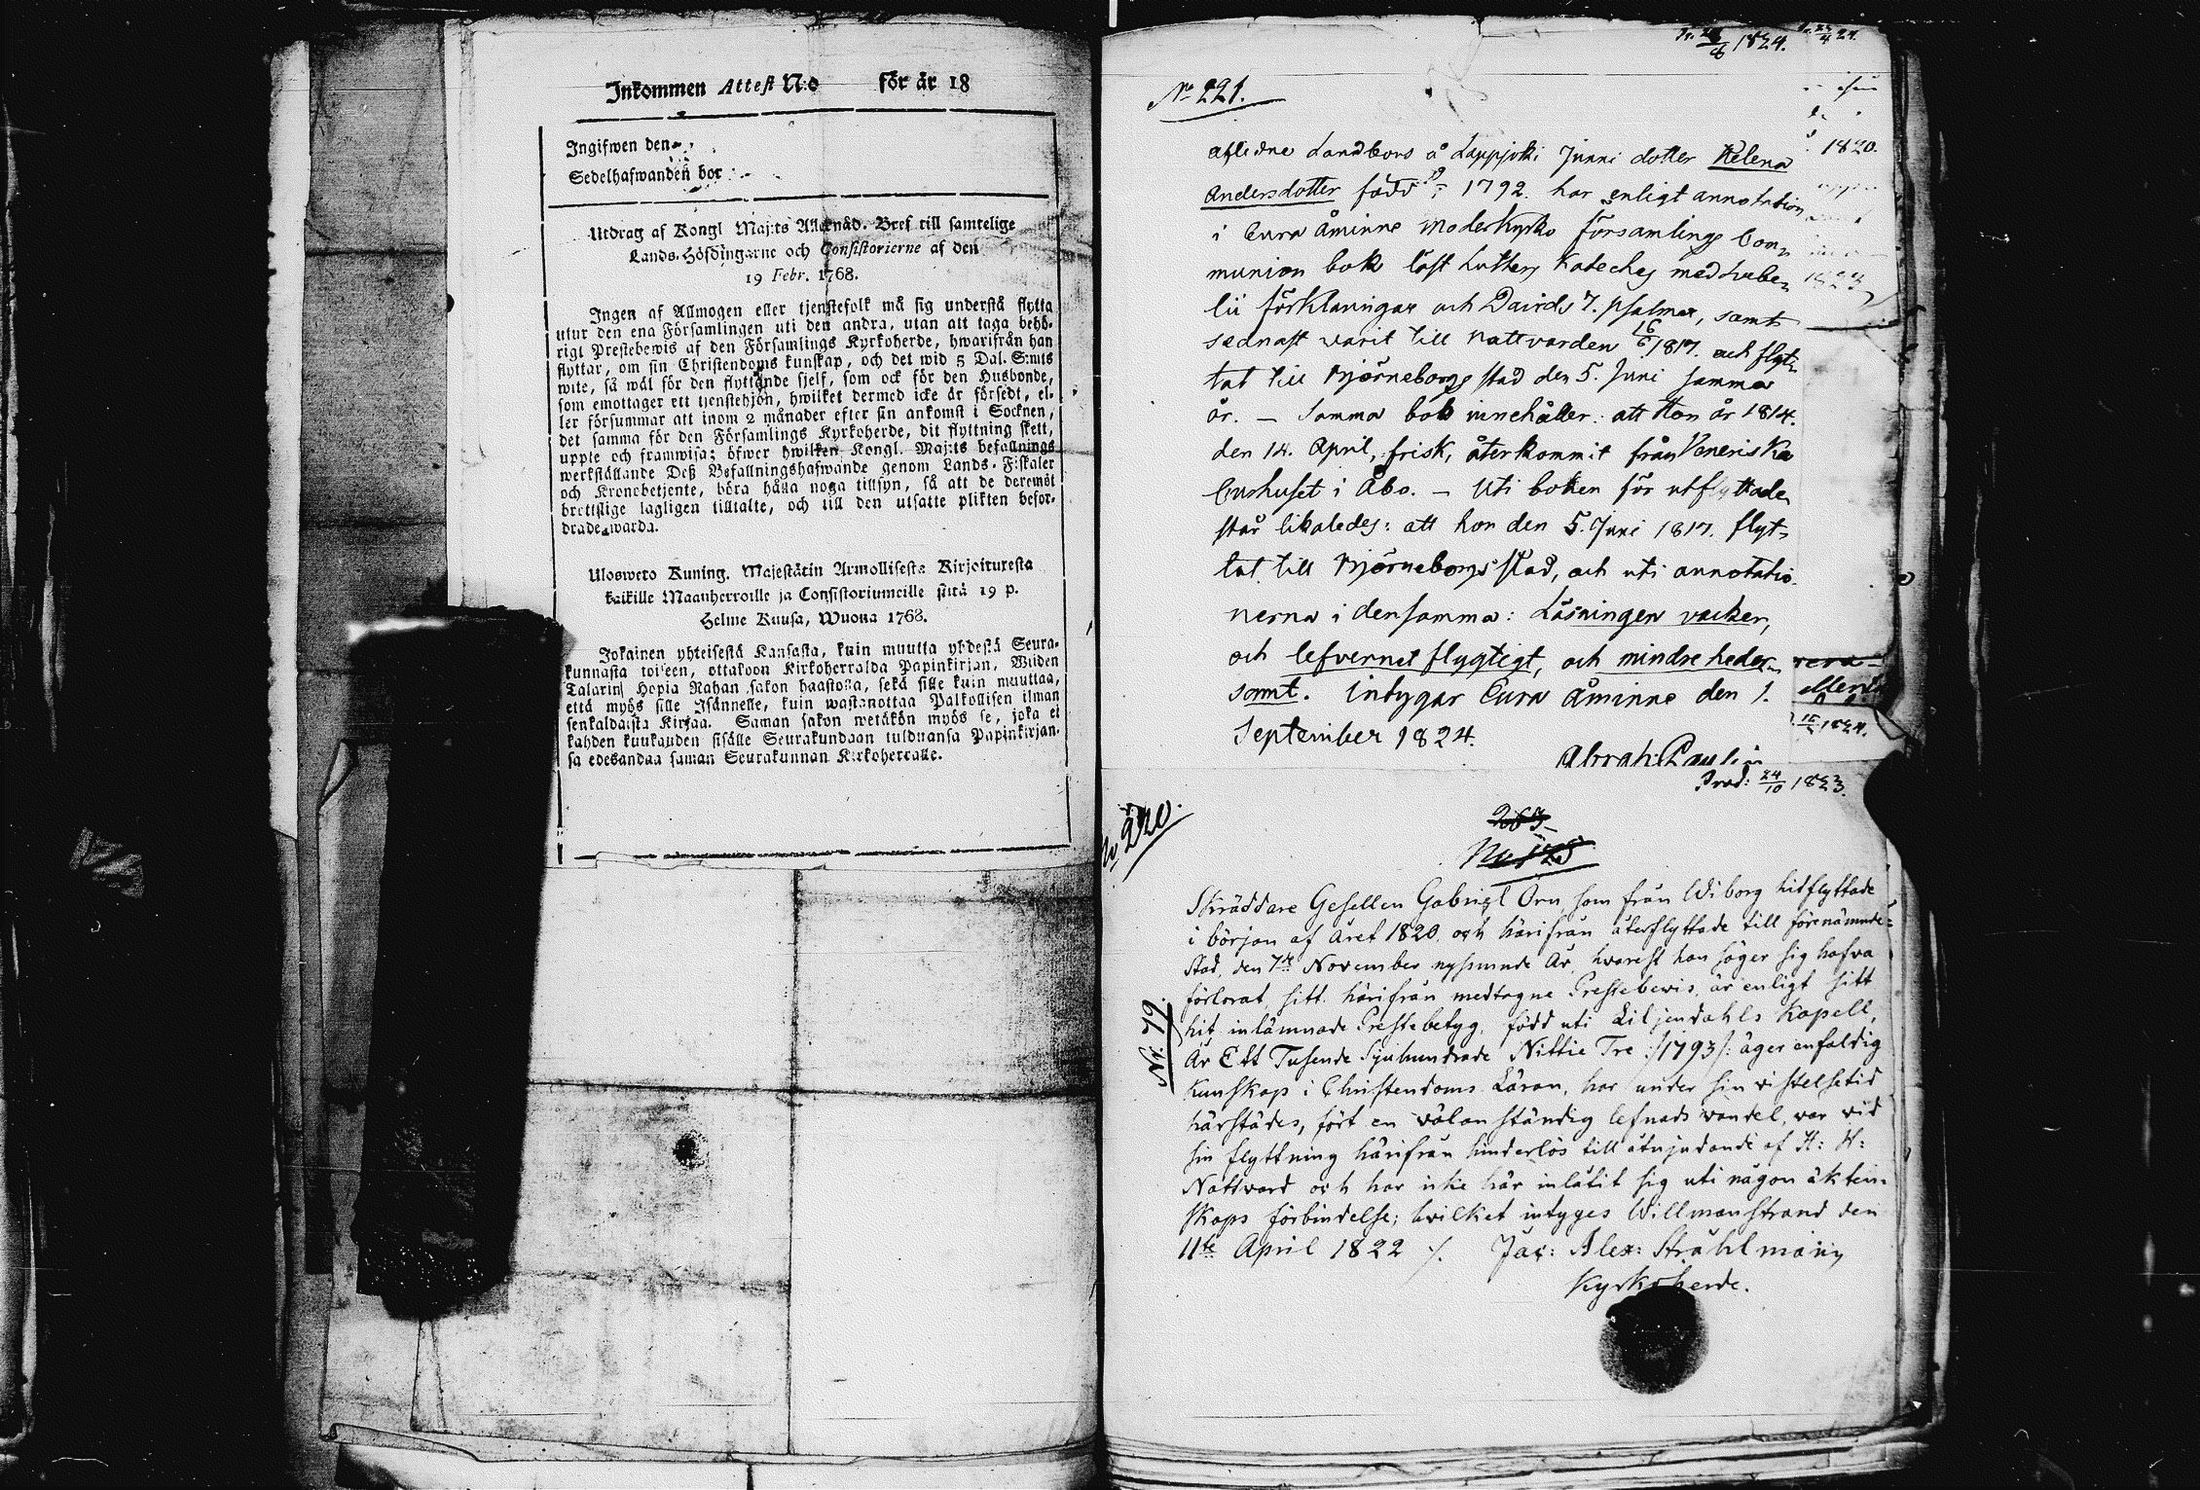 Inkommen Attest N:o för år 18
Ingifwen den
Sedelhafwanden bor
Utdrag af Kongl Maj:ts Allernåd. Bref till samtelige
Lands-Höfdingarne och Consistorierne af den
19 Febr. 1768.
Ingen af Allmogen eller tjenstefolk må sig understå flytta
utur den ena Församlingen uti den andra, utan att taga behö-
rigt Prestebewis af den Församlings Kyrkoherde, hwarifrån han
flyttar, om sin Christendoms kunskap, och det wid 5 Dal. S:mts
wite, så wäl för den flyttande sjelf, som ock för den Husbonde,
som emottager ett tjenstehjon, hwilket dermed icke är försedt, el-
ler försummar att inom 2 månader efter sin ankomst i Socknen,
det samma för den Församlings Kyrkoherde, dit flyttning skett,
uppte och framwisa; öfwer hwilken Kongl. Maj:ts befallnings
werkställande Deß Befallningshafwande genom Lands-Fiskaler
och Kronobetjente, böra hålla noga tillsyn, så att de deremot
brottslige lagligen tilltalte, och till den utsatte plikten befor-
drade warda.
Ulosweto Kuning. Majestätin Armollisesta Kirjoituresta
kaikille Maanherroille ja Consistoriumeille siitä 19 p.
Helme Kuusa, Wuona 1768.
Jokainen yhteisestä Kansasta, kuin muutta yhdestä Seura-
kunnasta toiseen, ottakoon Kirkoherralda Papinkirjan, Wiiden
Talarin Hopia Rahan sakon haastolla, sekä sille kuin muuttaa,
että myös sille Isännelle, kuin wastanottaa Palkollisen ilman
senkaldaista Kirjaa. Saman sakon wetäkön myös se, joka ei
kahden kuukauden sisälle Seurakundaan tulduansa Papinkirjan-
sa edesandaa saman Seurakunnan Kirkoherralle.
1824.
No 221.
1820.
aflidne Landbors å Lappjoki Junni dotter Helena
Andersdotter född 1792. har enligt annotation
i Eura Åminne Moderkyrko Församlings Com-
munion bok läst Luthers Kateches med Lube
lii förklaringar och Davids 7. psalmer, samt
sednast varit till nattvarden 16/6 1817. och flyt-
tat till Björneborgs stad den 5. Juni samma
år. – Samma bok innehåller: att Hon år 1814.
den 14. April, frisk, återkommit från Veneriska
Curhuset i Åbo. – Uti boken för utflyttade
står likaledes: att hon den 5. Juni 1817. flyt-
tat till Björneborgs stad, och uti annotatio-
nerna i densamma: Läsningen vacker,
och lefvernet flygtigt, och mindre heder-
samt. Intygar Eura Åminne den 1.
September 1824.
Abrah: Paulin
1824.
Prod: 24/10 1823.
No 220.
263
Nr. 79.
Skräddare Gesellen Gabriel Orn som från Wiborg hitflyttade
i början af året 1820. och härifrån återflyttade till förenämnde
Stad, den 7de November nyssnmnde År, hvarest han säger sig hafva
förlorat sitt härifrån medtagne Prestebevis, är enligt sitt
hit inlämnade Prestebetyg, född uti Liljendahls Kapell,
År Ett Tusende Sjuhundrade Nittie Tre :/1793/: äger enfaldig
Kunskap i Christendoms Läran, har under sin vistelsetid
härstädes, fört en välanständig lefnads vandel, var vid
sin flyttning härifrån hinderlös till åtnjutande af H: H:
Nattvard och har icke här inlåtit sig uti någon äkten-
skaps förbindelse; hvilket intyges Willmanstrand den
11te April 1822 ./. Jac: Alex: Stråhlman
Kyrkoherde.